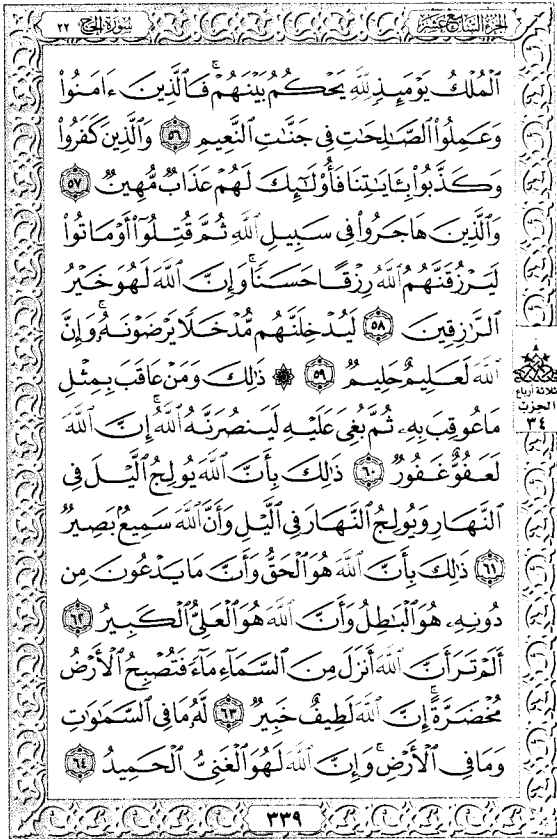 الجزء السابع عشر
سورة الحج ٢٢
ٱلْمُلْكُ يَوْمَئِذٍ لِّلَّهِ يَحْكُمُ بَيْنَهُمْ ۚ فَٱلَّذِينَ ءَامَنُوا۟
وَعَمِلُوا۟ ٱلصَّٰلِحَٰتِ فِى جَنَّٰتِ ٱلنَّعِيمِ ٥٦ وَٱلَّذِينَ كَفَرُوا۟
وَكَذَّبُوا۟ بِـَٔايَٰتِنَا فَأُو۟لَٰٓئِكَ لَهُمْ عَذَابٌ مُّهِينٌ ٥٧
وَٱلَّذِينَ هَاجَرُوا۟ فِى سَبِيلِ ٱللَّهِ ثُمَّ قُتِلُوٓا۟ أَوْ مَاتُوا۟
لَيَرْزُقَنَّهُمُ ٱللَّهُ رِزْقًا حَسَنًا ۚ وَإِنَّ ٱللَّهَ لَهُوَ خَيْرُ
ٱلرَّٰزِقِينَ ٥٨ لَيُدْخِلَنَّهُم مُّدْخَلًا يَرْضَوْنَهُۥ ۗ وَإِنَّ
ٱللَّهَ لَعَلِيمٌ حَلِيمٌ ٥٩ ۞ ذَٰلِكَ وَمَنْ عَاقَبَ بِمِثْلِ
مَا عُوقِبَ بِهِۦ ثُمَّ بُغِىَ عَلَيْهِ لَيَنصُرَنَّهُ ٱللَّهُ ۗ إِنَّ ٱللَّهَ
لَعَفُوٌّ غَفُورٌ ٦٠ ذَٰلِكَ بِأَنَّ ٱللَّهَ يُولِجُ ٱلَّيْلَ فِى
ٱلنَّهَارِ وَيُولِجُ ٱلنَّهَارَ فِى ٱلَّيْلِ وَأَنَّ ٱللَّهَ سَمِيعٌۢ بَصِيرٌ
٦١ ذَٰلِكَ بِأَنَّ ٱللَّهَ هُوَ ٱلْحَقُّ وَأَنَّ مَا يَدْعُونَ مِن
دُونِهِۦ هُوَ ٱلْبَٰطِلُ وَأَنَّ ٱللَّهَ هُوَ ٱلْعَلِىُّ ٱلْكَبِيرُ ٦٢
أَلَمْ تَرَ أَنَّ ٱللَّهَ أَنزَلَ مِنَ ٱلسَّمَآءِ مَآءً فَتُصْبِحُ ٱلْأَرْضُ
مُخْضَرَّةً ۗ إِنَّ ٱللَّهَ لَطِيفٌ خَبِيرٌ ٦٣ لَّهُۥ مَا فِى ٱلسَّمَٰوَٰتِ
وَمَا فِى ٱلْأَرْضِ ۗ وَإِنَّ ٱللَّهَ لَهُوَ ٱلْغَنِىُّ ٱلْحَمِيدُ ٦٤
ثلاثة أرباع
الحزب
٣٤
٣٣٩